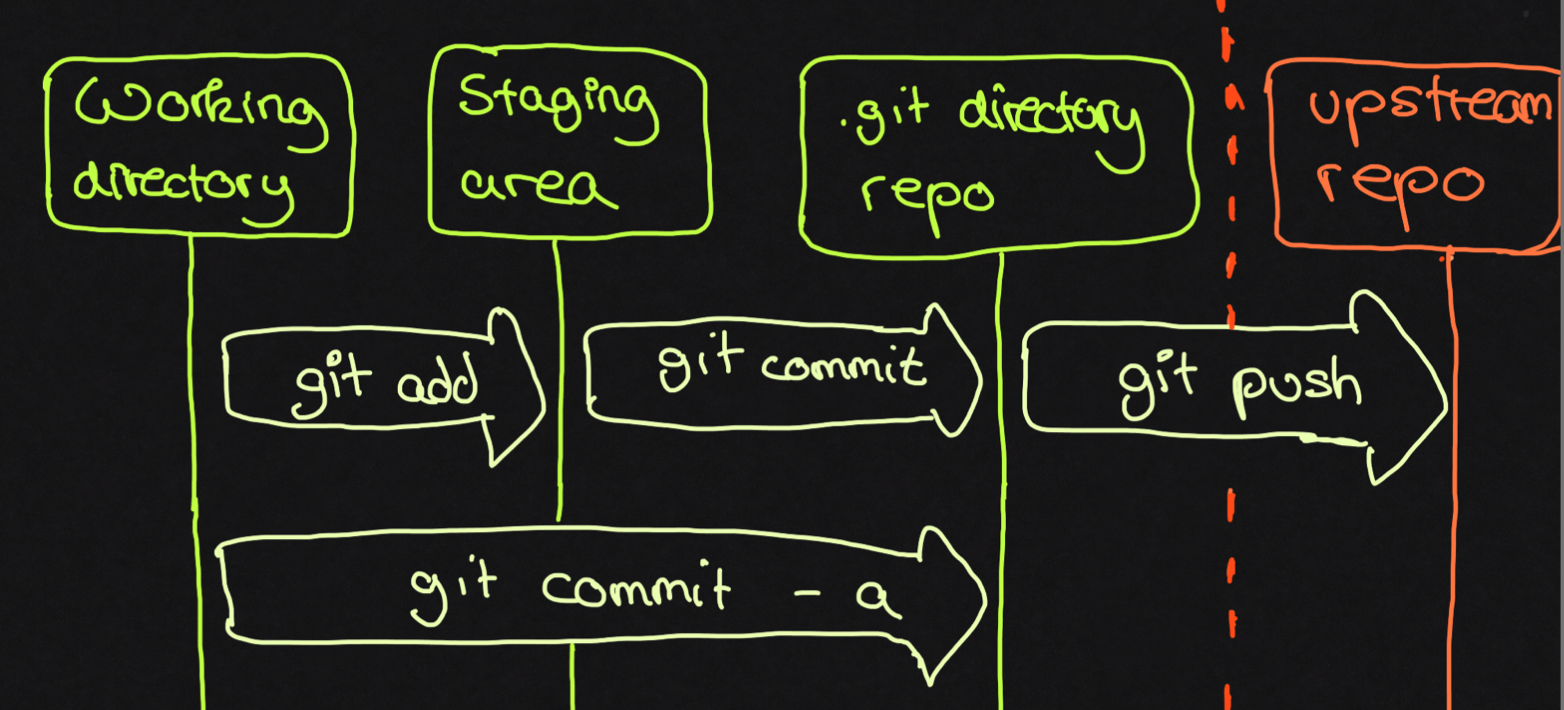 Working
directory
Staging
area
.git directory
repo
upstream
repo
git add
git commit
git push
git commit - a